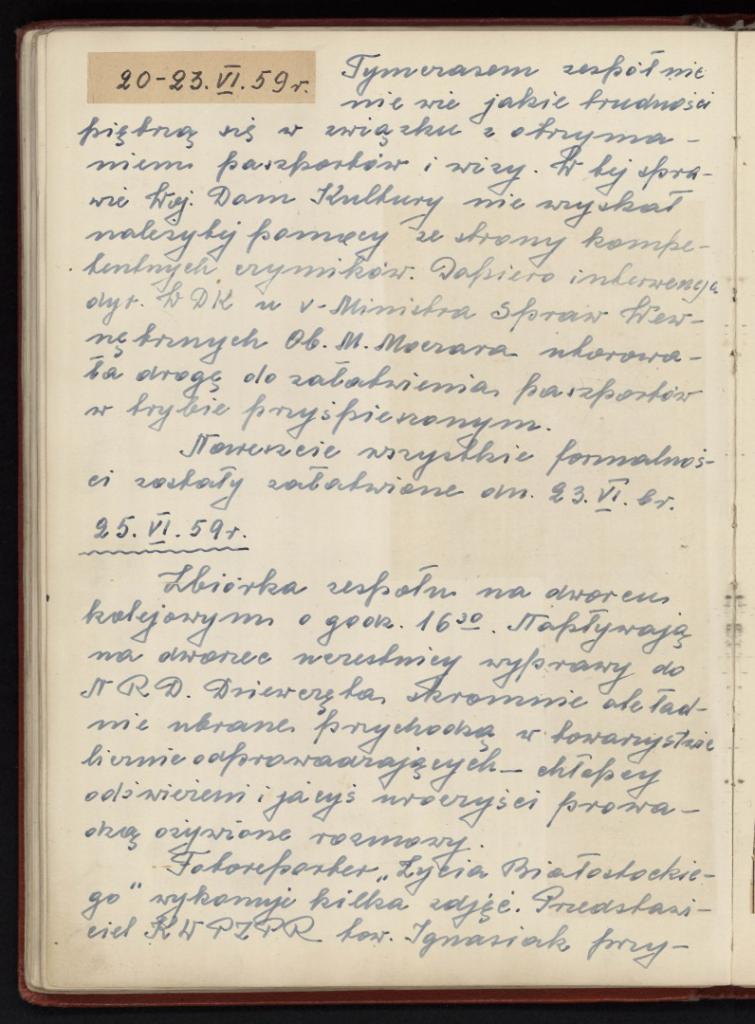 20-23.VI.59r. Tymczasem zespół nie
nie wie jakie trudności
piętrzą się w związku z otrzyma-
niem paszportów i wizy. W tej spra-
wie Woj. Dom Kultury nie uzyskał
należytej pomocy ze strony kompe-
tentnych czynników. Dopiero interwencja
dyr. WDK u v-Ministra Spraw Wew-
nętrznych Ob. M. Moczara utorowa-
ła drogę do załatwienia paszportów
w trybie przyśpieszonym.
Nareszcie wszystkie formalnoś-
ci zostały załatwione dn. 23.VI.br.
25.VI.59r.
Zbiórka zespołu na dworcu
kolejowym o godz. 16 30. Napływają
na dworzec uczestnicy wyprawy do
NRD. Dziewczęta skromnie ale ład-
nie ubrane przychodzą w towarzystwie
licznie odprowadzających – chłopcy
odświeżeni i jacyś uroczyści prowa-
dzą ożywione rozmowy.
Fotoreporter „Życia Białostockie-
go" wykonuje kilka zdjęć. Przedstawi-
ciel KW PZPR tow. Ignasiak przy-